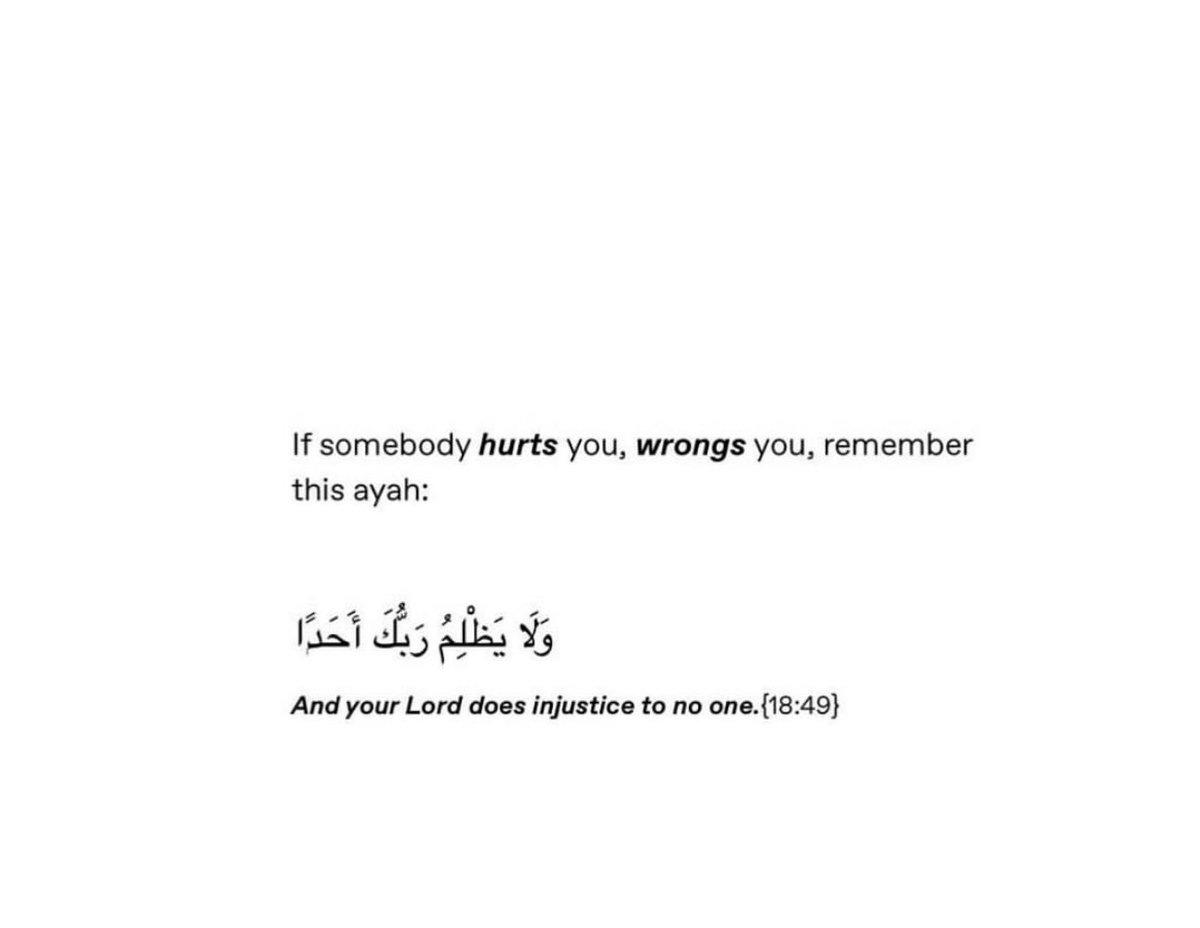 If somebody hurts you, wrongs you, remember
this ayah:
وَلَا يَظْلِمُ رَبُّكَ أَحَدًا
And your Lord does injustice to no one.{18:49}